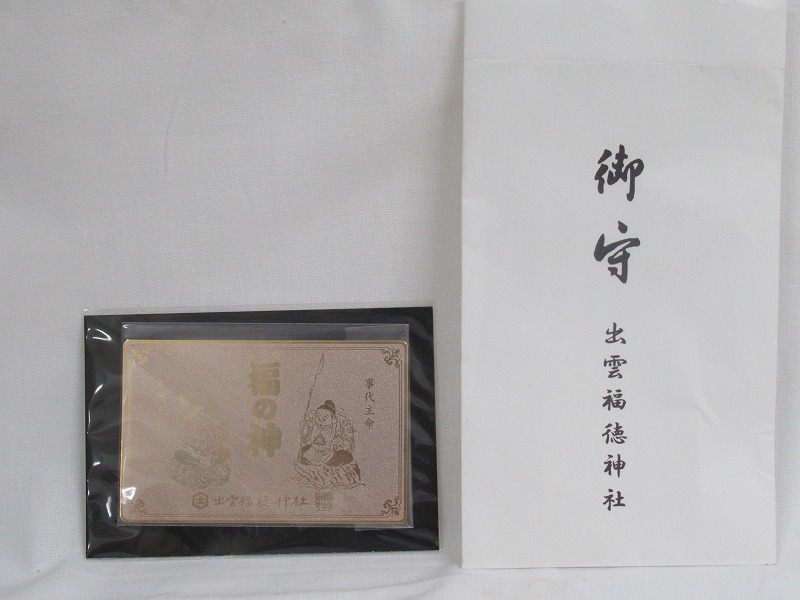 御守
出雲福徳神社
事代主命
福の神
出雲福徳神社